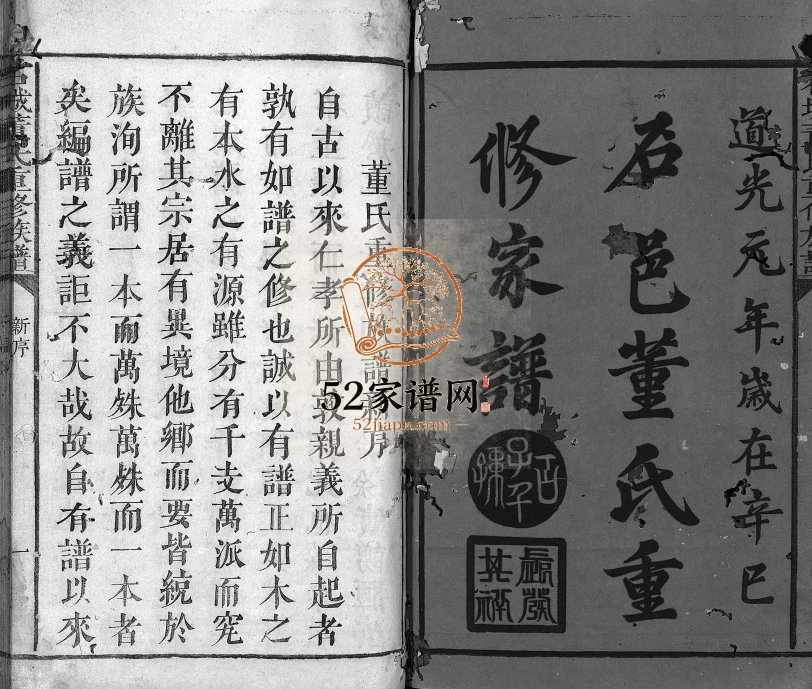 道光元年歲在辛巳
石邑董氏重
修家譜
董氏重修族譜新序
自古以來仁孝所由敦親義所自起者
孰有如譜之修也誠以有譜正如木之
有本水之有源雖分有千支萬派而究
不離其宗居有異境他鄉而要皆統於
族洵所謂一本而萬殊萬殊而一本者
矣編譜之義詎不大哉故自有譜以來
董氏重修族譜
新序
一
52家谱网
52jiapu.com